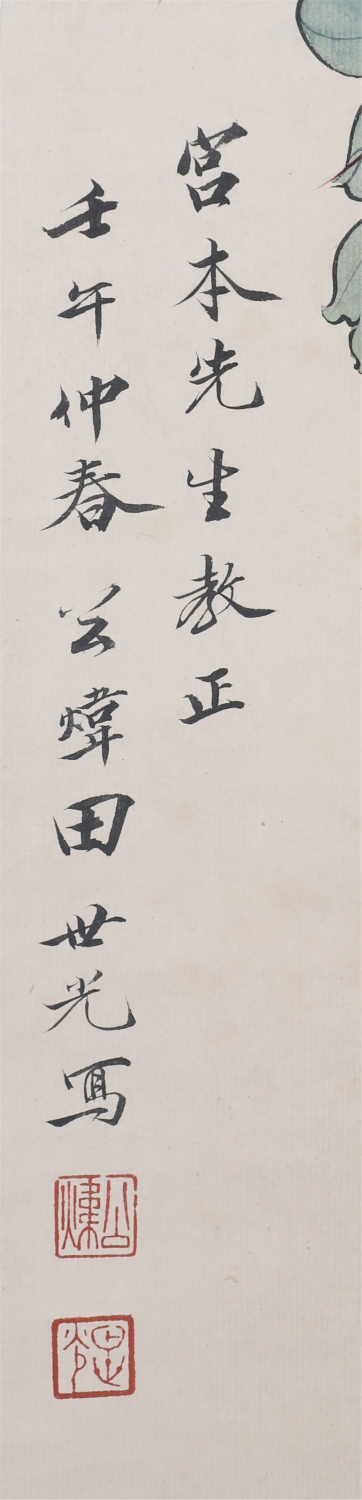 宮本先生教正
壬午仲春公煒田世光寫
公煒